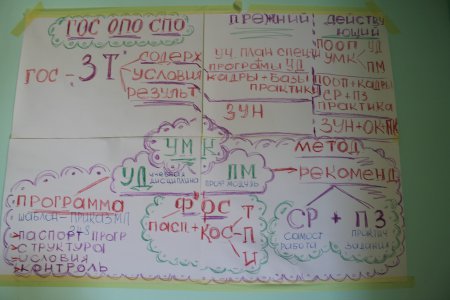 ГОС ОПО СПО
ПРЕЖНИЙ
ДЕЙСТВУ
ЮЩИЙ
ГОС - 3Т
СОДЕРЖ
УСЛОВИЯ
РЕЗУЛЬТ
УЧ ПЛАН СПЕЦ
ПРОГРАММЫ УД
КАДРЫ + БАЗЫ
ПРАКТИКИ
ЗУН
ПООП УД
УМК ПМ
ПООП + КАДРЫ
СР + ПЗ
ПРАКТИКА
ЗУН + ОК + ПК
УМК
УД УЧЕБНАЯ
ДИСЦИПЛИНА
ПМ
ПРОФ МОДУЛЬ
МЕТОД
РЕКОМЕНД
ПРОГРАММА
ШАБЛОН - ПРИКАЗ
ПАСПОРТ ПРОГР
СТРУКТУРА
УСЛОВИЯ
КОНТРОЛЬ
ФОС
ПАСП. + КОС
Т
П
И
СР + ПЗ
САМОСТ
РАБОТА
ПРАКТИЧ
ЗАДАНИЯ